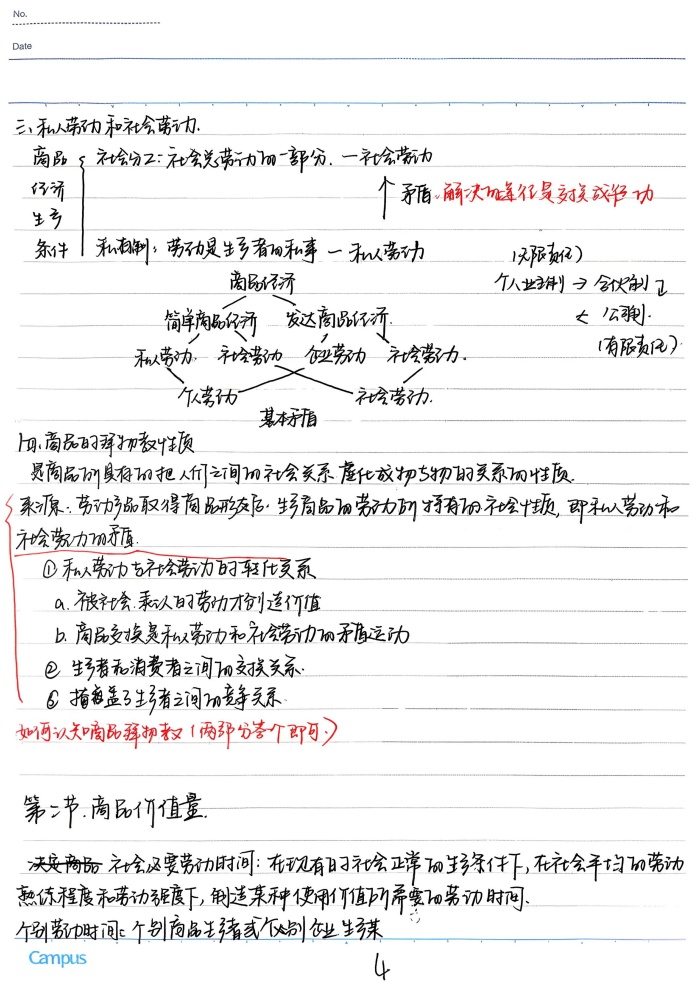 No.
Date
三、私人劳动和社会劳动.
商品 社会分工:社会总劳动的一部分. — 社会劳动
经济
生产 ↑ 矛盾:解决的途径是交换成功
条件 私有制:劳动是生产者的私事 — 私人劳动
(无限责任)
商品经济 个人业主制 → 合伙制
简单商品经济 发达商品经济. ← 公司制.
私人劳动. 社会劳动 企业劳动 社会劳动. (有限责任)
个人劳动 社会劳动.
基本矛盾
四、商品的拜物教性质
是商品所具有的把人们之间的社会关系虚化成物与物的关系的性质.
来源:劳动产品取得商品形式后,生产商品的劳动所特有的社会性质,即私人劳动和
社会劳动的矛盾.
① 私人劳动与社会劳动的转化关系
a. 被社会承认的劳动才创造价值
b. 商品交换是私人劳动和社会劳动的矛盾运动
② 生产者和消费者之间的交换关系.
③ 掩盖了生产者之间的竞争关系.
如何认知商品拜物教(两部分答个即可.)
第二节.商品价值量.
决定商品 社会必要劳动时间:在现有的社会正常的生产条件下,在社会平均的劳动
熟练程度和劳动强度下,制造某种使用价值所需要的劳动时间.
个别劳动时间:个别商品生产者或个别企业生产某
Campus
4